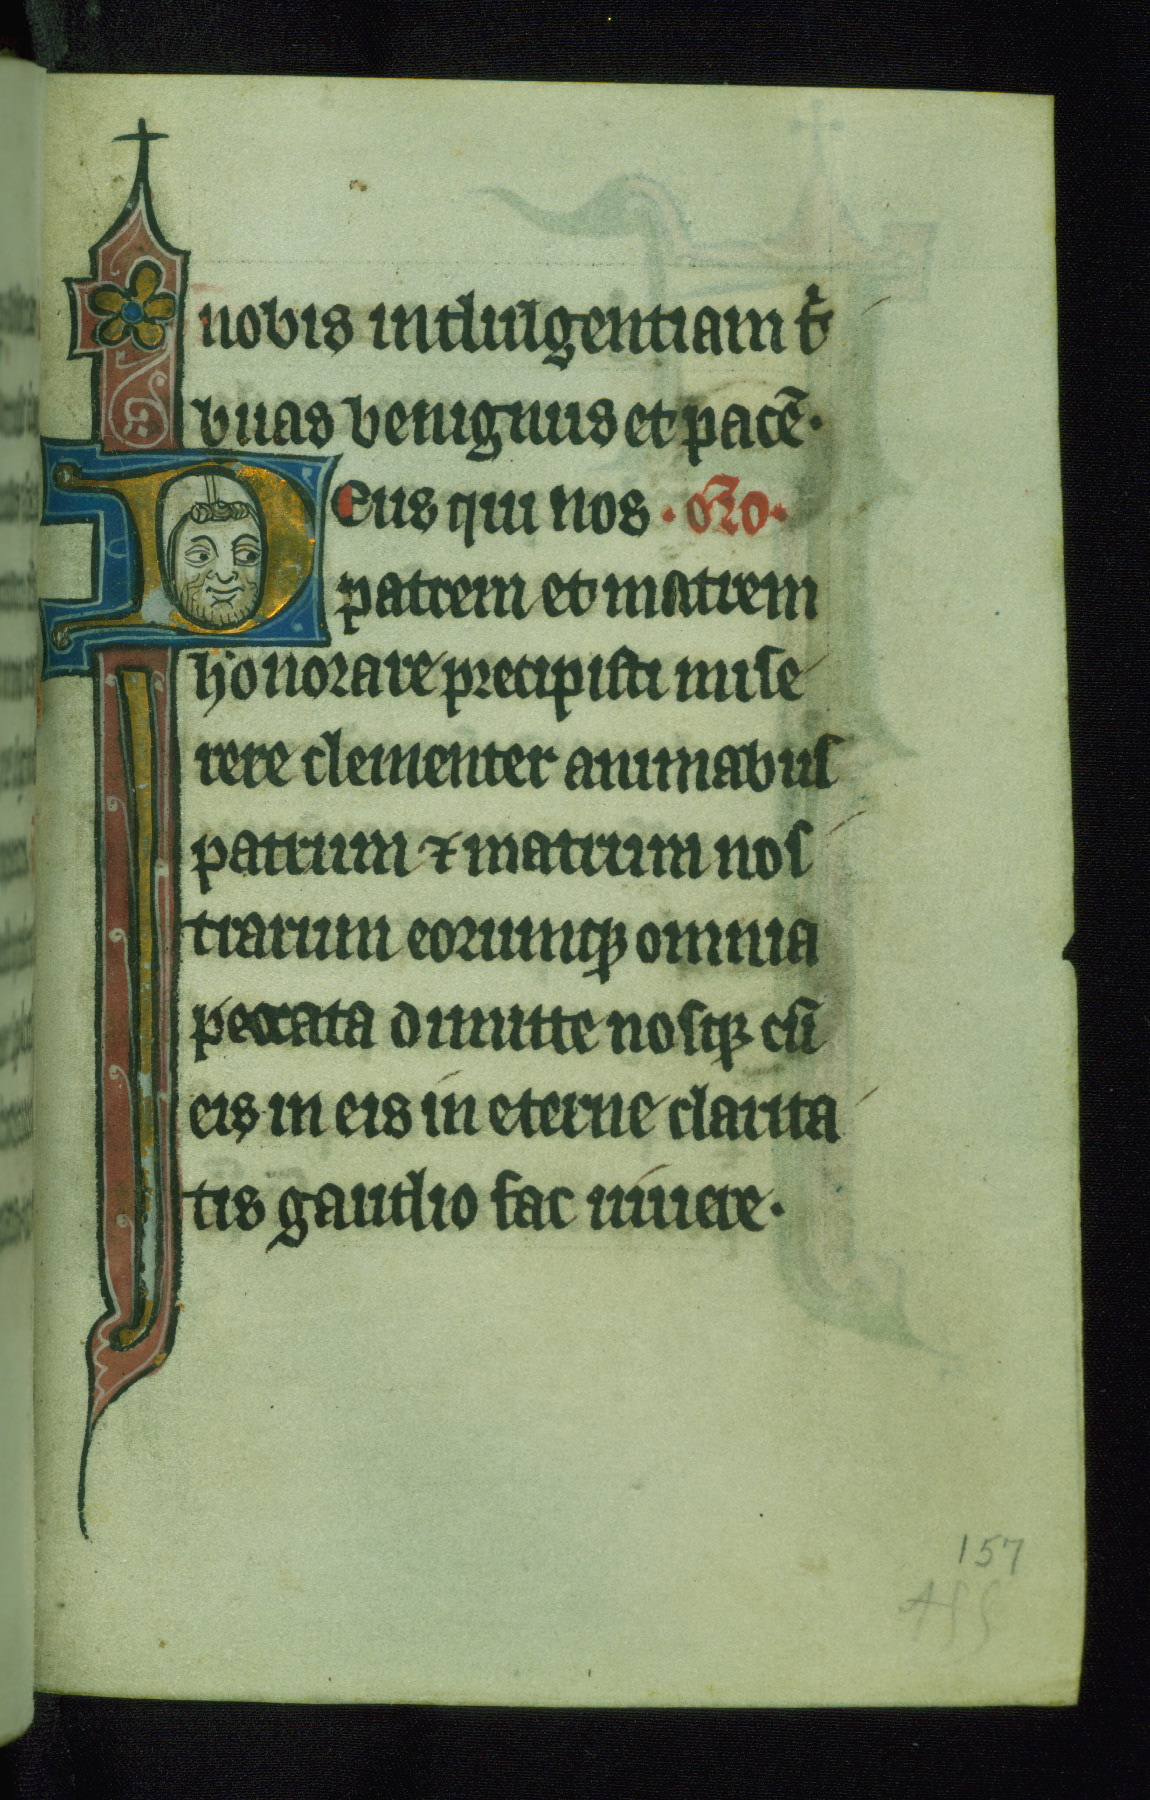 nobis indulgentiam t̾
buas benignus et pacē·
Deus qui nos · oro̅ ·
patrem et matrem
honorare precipisti mise
rere clementer animabus
patrum ⁊ matrum nos
trarum eorumqꝫ omnia
peccata dimitte nosqꝫ cū
eis in eis in eterne clarita
tis gaudio fac uiuere·
157